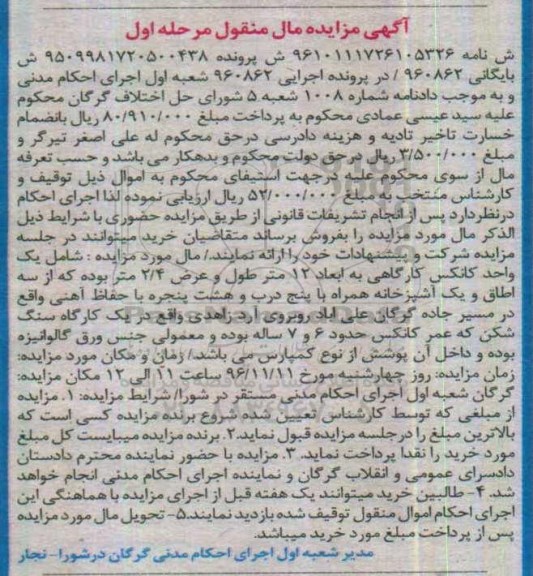 آگهی مزایده مال منقول مرحله اول
ش نامه ۹۶۱۰۱۱۱۷۲۶۱۰۵۳۲۶ ش پرونده ۹۵۰۹۹۸۱۷۲۰۵۰۰۴۳۸ ش
بایگانی ۹۶۰۸۶۲ / در پرونده اجرایی ۹۶۰۸۶۲ شعبه اول اجرای احکام مدنی
و به موجب دادنامه شماره ۱۰۰۸ شعبه ۵ شورای حل اختلاف گرگان محکوم
علیه سید عیسی عمادی محکوم به پرداخت مبلغ ۸۰/۹۱۰/۰۰۰ ریال بانضمام
خسارت تاخیر تادیه و هزینه دادرسی درحق محکوم له علی اصغر تیرگر و
مبلغ ۳/۵۰۰/۰۰۰ ریال درحق دولت محکوم و بدهکار می باشد و حسب تعرفه
مال از سوی محکوم علیه درجهت استیفای محکوم به اموال ذیل توقیف و
کارشناس منتخب به مبلغ ۵۲/۰۰۰/۰۰۰ ریال ارزیابی نموده لذا اجرای احکام
درنظردارد پس از انجام تشریفات قانونی از طریق مزایده حضوری با شرایط ذیل
الذکر مال مورد مزایده را بفروش برساند متقاضیان خرید میتوانند در جلسه
مزایده شرکت و پیشنهادات خود را ارائه نمایند./ مال مورد مزایده : شامل یک
واحد کانکس کارگاهی به ابعاد ۱۲ متر طول و عرض ۲/۴ متر بوده که از سه
اطاق و یک آشپزخانه همراه با پنج درب و هشت پنجره با حفاظ آهنی واقع
در مسیر جاده گرگان علی اباد روبروی آرد زاهدی واقع در یک کارگاه سنگ
شکن که عمر کانکس حدود ۶ و ۷ ساله بوده و معمولی جنس ورق گالوانیزه
بوده و داخل آن پوشش از نوع کمپارس می باشد./ زمان و مکان مورد مزایده:
زمان مزایده: روز چهارشنبه مورخ ۹۶/۱۱/۱۱ ساعت ۱۱ الی ۱۲ مکان مزایده:
گرگان شعبه اول اجرای احکام مدنی مستقر در شورا/ شرایط مزایده: ۱. مزایده
از مبلغی که توسط کارشناس تعیین شده شروع برنده مزایده کسی است که
بالاترین مبلغ را درجلسه مزایده قبول نماید.۲. برنده مزایده میبایست کل مبلغ
مورد خرید را نقدا پرداخت نماید. ۳. مزایده با حضور نماینده محترم دادستان
دادسرای عمومی و انقلاب گرگان و نماینده اجرای احکام مدنی انجام خواهد
شد. ۴- طالبین خرید میتوانند یک هفته قبل از اجرای مزایده با هماهنگی این
اجرای احکام اموال منقول توقیف شده بازدید نمایند.۵- تحویل مال مورد مزایده
پس از پرداخت مبلغ مورد خرید میباشد.
مدیر شعبه اول اجرای احکام مدنی گرگان درشورا- نجار